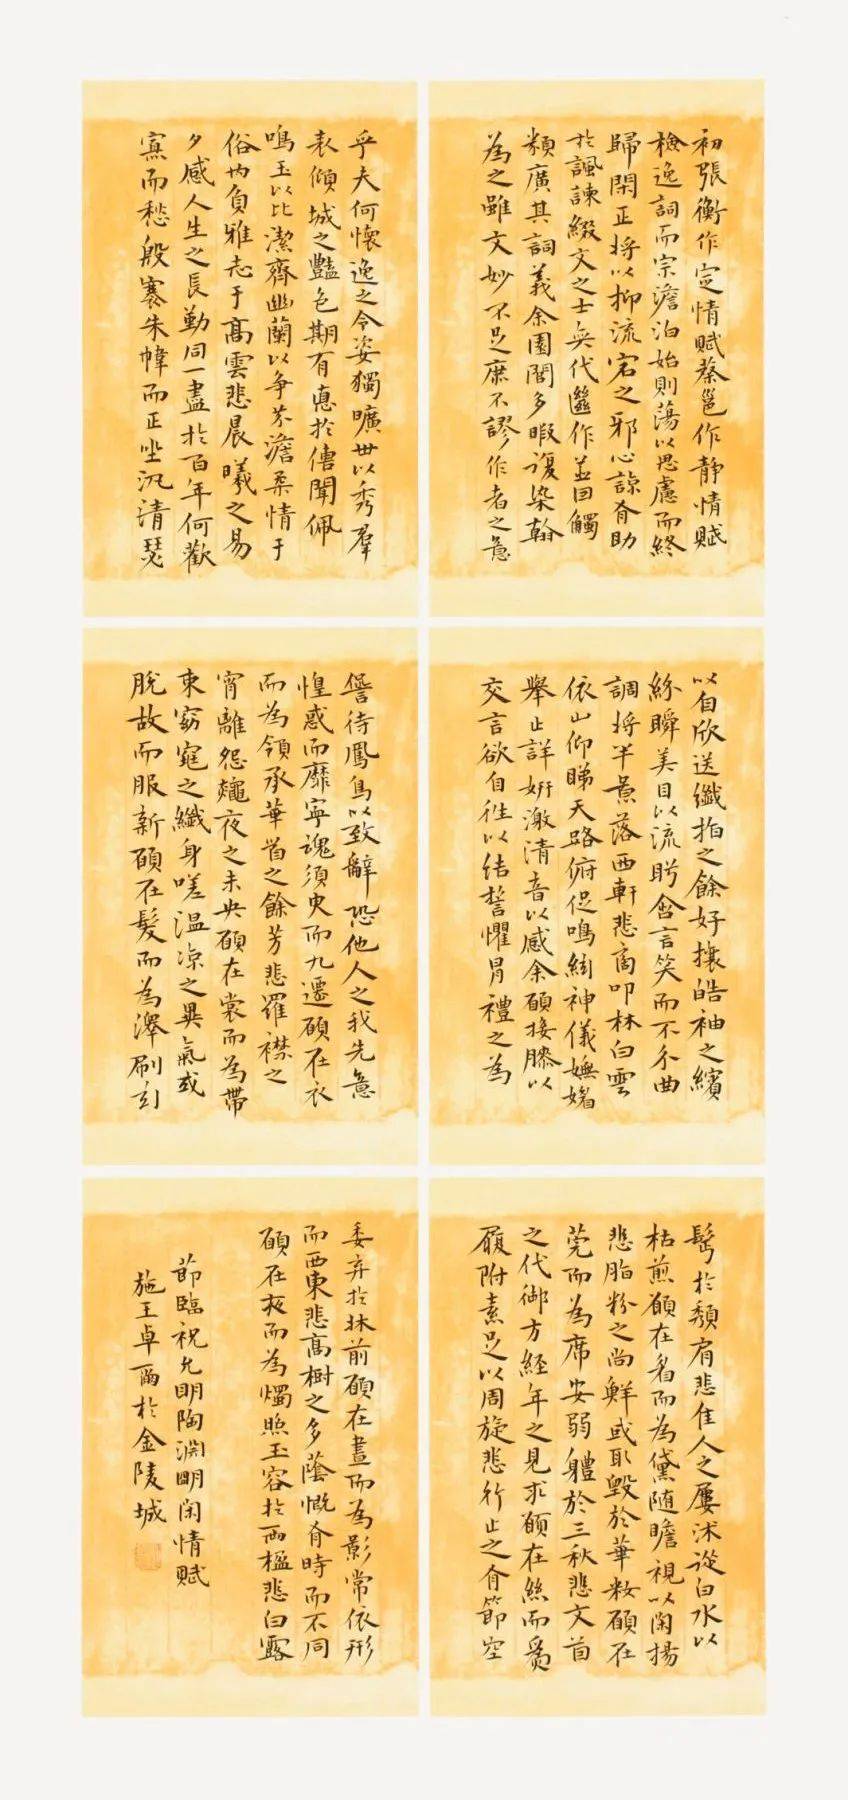 初張衡作定情賦蔡邕作靜情賦
檢逸詞而宗澹泊始則蕩以思慮而終
歸閑正将以抑流宕之邪心諒有助
於諷諫綴文之士奕代繼作並因觸
類廣其詞義余園閭多暇復染翰
為之雖文妙不足庶不謬作者之意
乎夫何懷逸之令姿獨曠世以秀羣
表傾城之豔色期有悳於傳聞佩
鳴玉以比潔齊幽蘭以争芬澹柔情于
俗内負雅志于高雲悲晨曦之易
夕感人生之長勤同一盡於百年何歡
寡而愁殷褰朱幃而正坐汎清瑟
以自欣送纖指之餘好攘皓袖之繽
紛瞬美目以流眄含言笑而不分曲
調将半景落西軒悲商叩林白雲
依山仰睇天路俯促鳴絃神儀嫵媚
舉止詳妍激清音以感余願接膝以
交言欲自往以結誓懼冒禮之為
諐待鳳鳥以致辭恐他人之我先意
惶惑而靡寧魂須臾而九遷願在衣
而為領承華首之餘芳悲羅襟之
宵離怨龝夜之未央願在裳而為帶
束窈窕之纖身嗟温涼之異氣或
脫故而服新願在髮而為澤刷玄
鬢於頹肩悲佳人之屢沐從白水以
枯煎願在眉而為黛隨瞻視以閑揚
悲脂粉之尚鮮或取毀於華粧願在
莞而為席安弱體於三秋悲文茵
之代御方經年之見求願在絲而為
履附素足以周旋悲行止之有節空
委弃於牀前願在晝而為影常依形
而西東悲高樹之多蔭慨有時而不同
願在夜而為燭照玉容於兩楹悲白露
節臨祝允明陶淵明閑情賦
施王卓爾於金陵城